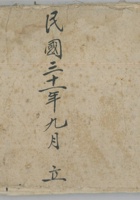 民國三十一年九月 立